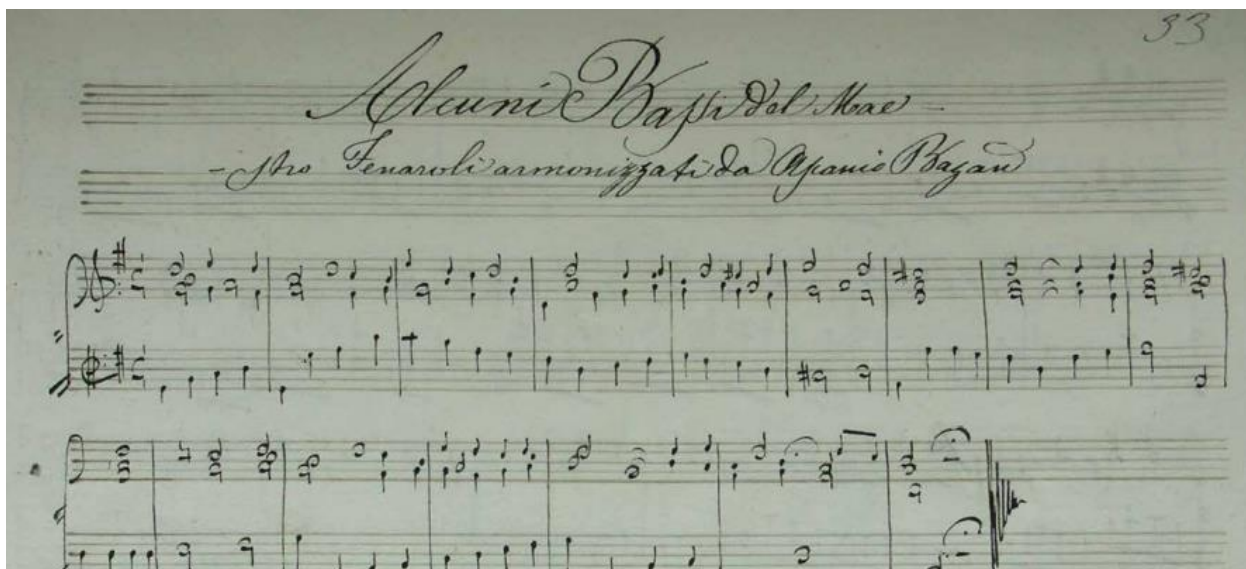 33
Alcuni Bassi del Mae-
-stro Fenaroli armonizzati da Apanio Bagan